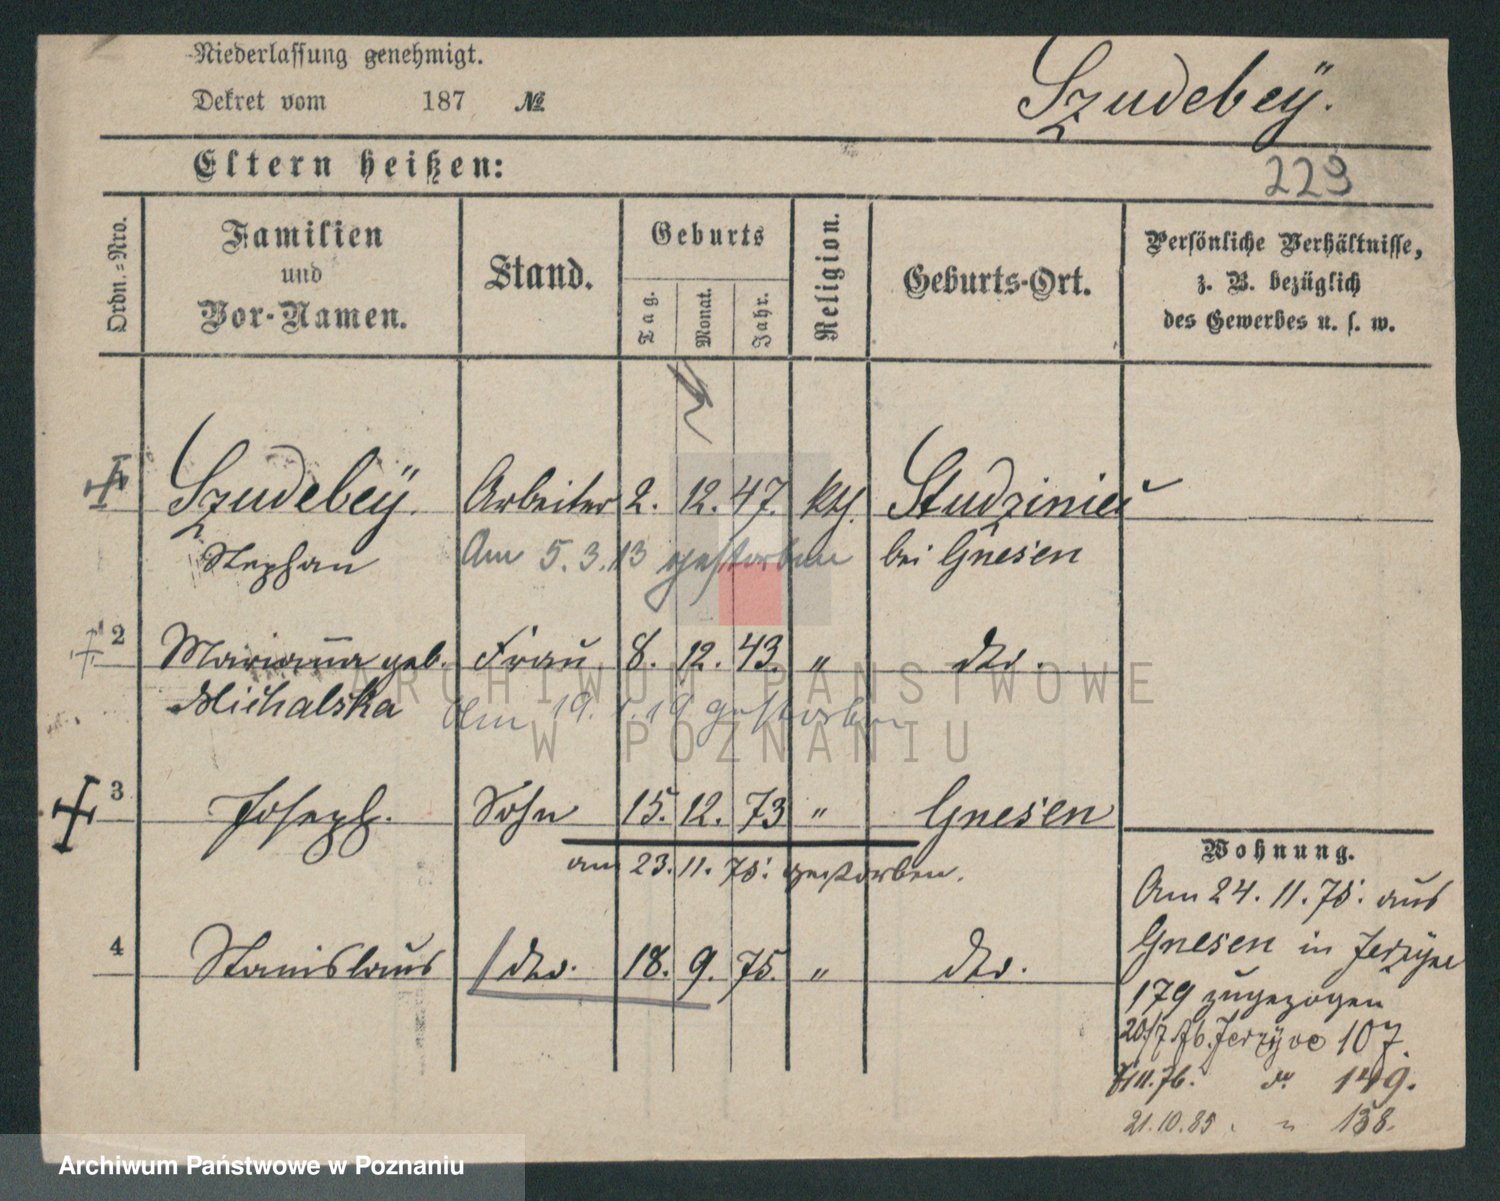 Niederlassung genehmigt.
Dekret vom 187 №
Szudebeÿ.
Eltern heißen:
229
Ordn.=Nro.
Familien
und
Vor-Namen.
Stand.
Geburts
Tag.
Monat.
Jahr.
Religion.
Geburts-Ort.
Persönliche Verhältnisse,
z. B. bezüglich
des Gewerbes u. s. w.
Szudebeÿ. Arbeiter 2. 12. 47. kth. Studziniec
Stephan Am 5.3.13 gestorben bei Gnesen
2 Marianna geb. Frau 8. 12. 43. " dto.
Michalska Am 19. 19 gestorben
3 Joseph. Sohn 15. 12. 73 " Gnesen
am 23. 11. 75. gestorben.
4 Stanislaus dto. 18. 9. 75. " dto.
Wohnung.
Am 24. 11. 75. aus
Gnesen in Jerzÿce
179 zugezogen
20/7 76. Jerzÿce 107.
11.76. do 149.
21.10.85. " 138.
ARCHIWUM PAŃSTWOWE
W POZNANIU
Archiwum Państwowe w Poznaniu